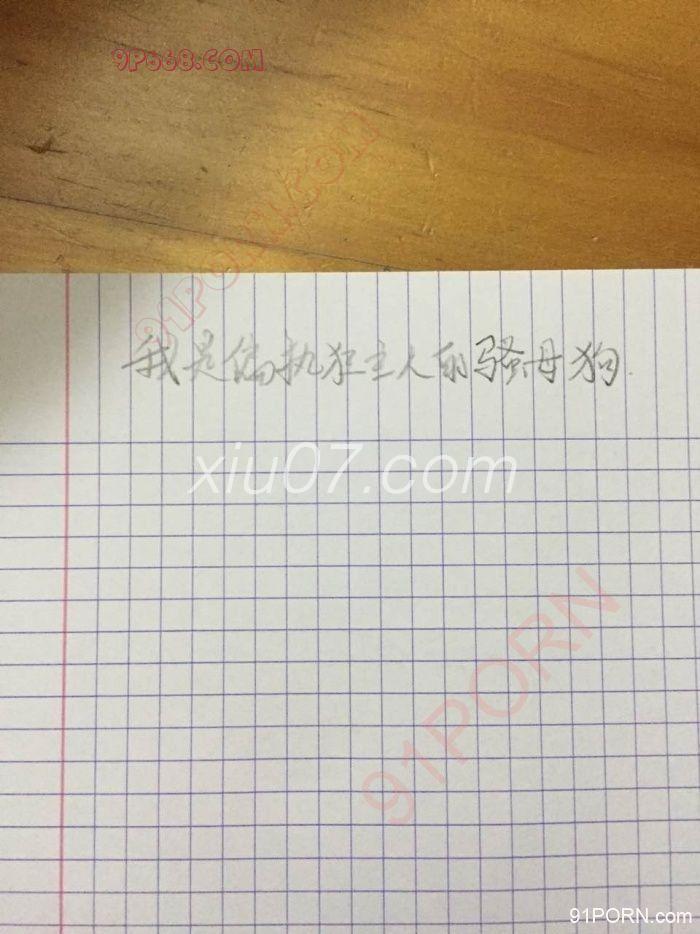 9P668.COM
91PORN.COM
我是偏执狂主人的骚母狗.
xiu07.com
91PORN
91PORN.com